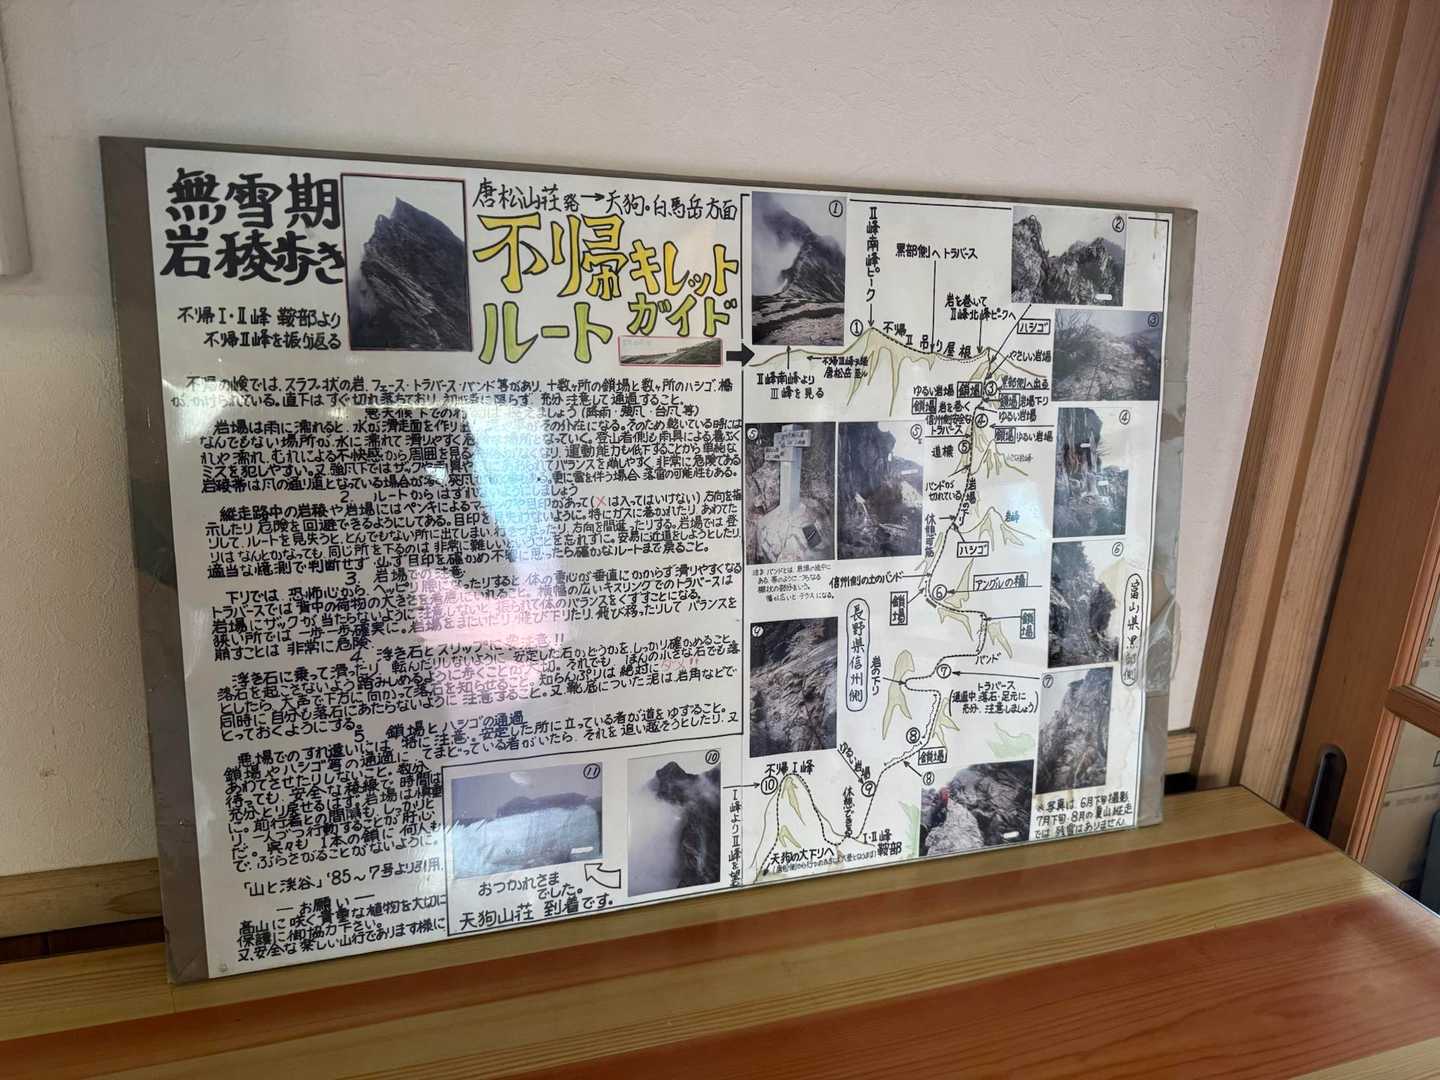 無雪期
岩稜歩き
不帰Ⅰ・Ⅱ峰 鞍部より
不帰Ⅱ峰を振り返る
唐松山荘発→天狗・白馬岳方面
不帰キレット
ルートガイド
不帰の嶮では、スラブ状の岩、フェース・トラバース・バンド等があり、十数ヶ所の鎖場と数ヶ所のハシゴ、橋
が、かけられている。直下はすぐ切れ落ちており、初心者に限らず、充分注意して通過すること。
悪天候下での
ましょう(降雨・強風・台風等)
岩場は雨に濡れると、水が滑走面を作り
そのため乾いている時には
なんでもない場所が、水に濡れて滑りやすく危険な場所となっていく。登山者側も雨具による着ぶく
れや濡れ、むれによる不快感から周囲を見る
なくなり、運動能力も低下することから単純な
ミスを犯しやすい。又強風下ではザックや雨具や
バランスを崩しやすく非常に危険である
岩稜帯は風の通り道となっている場合が多く、突風
更に雷を伴う場合、落雷の可能性もある。
2. ルートからはずれないようにしましょう
縦走路中の岩稜や岩場にはペンキによるマークや目印があって(×は入ってはいけない)方向を指
示したり危険を回避できるようにしてある。目印を見失わないように。特にガスに巻かれたり、あわてた
りして、ルートを見失うと、とんでもない所に出てしまい
方向を間違ったりする。岩場では登
りはなんとかなっても、同じ所を下るのは非常に難しい
ことを忘れずに。安易に近道をしようとしたり、
適当な憶測で判断せず、必ず目印を確かめ不審に思ったら確かなルートまで戻ること。
3. 岩場での注意
下りでは、恐怖心から、ヘッピリ腰になったりすると、体の重心が垂直にかからず滑りやすくなる
トラバースでは背中の荷物の大きさを考慮に入れること。横幅の広いキスリングでのトラバースは
岩場にザックが当たらないように注意しないと、振られて体のバランスをくずすことになる。
狭い所では一歩一歩確実に。岩場をまたいだり、飛び下りたり、飛び移ったりして、バランスを
崩すことは非常に危険
4. 浮き石とスリップに要注意!!
浮き石に乗って滑ったり、転んだりしないように、安定した石かどうかをしっかり確かめること。
落石を起こさないよう踏みしめるように歩くことが大切。それでも、ほんの小さな石でも落
としたら、大声で下方に向かって落石を知らせること。知らんぷりは絶対にダメ!!
同時に自分も落石にあたらないように注意すること。又靴底についた泥は岩角などで
とっておくようにする。
5. 鎖場とハシゴの通過
悪場でのすれ違いには、特に注意。安定した所に立っている者が道をゆずること。
鎖場やハシゴ等の通過にてまどっている者がいたら、それを追い越そうとしたり、又
あわてさせたりしないこと。数分
待っても、安全な稜線で時間は
充分とり戻せるはず。岩場は慎重
に。前行者との間隔も、しっかりと
一人づつ行動することが肝心
だ。冥々も1本の鎖に何人も
で、ぶらさがることがないように。
「山と渓谷」'85～7号より引用。
―お願い―
高山に咲く貴重な植物を大切に
保護に御協力下さい。
又、安全な楽しい山行であります様に
⑪
⑩
おつかれさま
でした。
天狗山荘 到着です。
Ⅰ峰よりⅡ峰を望む
①
Ⅱ峰南峰ピーク
Ⅱ峰南峰より
Ⅲ峰を見る
①
不帰
Ⅱ峰
吊り屋根
唐松岳
黒部側へトラバース
岩を巻いて
Ⅱ峰北峰ピークへ
②
ハシゴ
③
やさしい岩場
ゆるい岩場
鎖場
③
黒部側へ出る
鎖場
岩を巻く
鎖場
岩場下り
ゆるい岩場
信州側安全な
トラバース
④
鎖場
ゆるい岩場
道標
⑤
④
バンドが
切れている
岩場の下り
岩峰
休憩可能
ハシゴ
⑤
⑤
注:バンドとは、岩場の途中に
ある、帯のようにつらなる
棚状の部分をいう。
幅が広いとテラスになる。
信州側の土のバンド
⑥
アングルの橋
⑥
鎖場
鎖場
長野県信州側
富山県黒部側
バンド
岩の下り
⑦
トラバース
(通過中、落石・足元に
充分、注意しましょう)
⑦
⑨
⑧
鎖場
⑧
岩場
⑨
休憩できる
不帰Ⅰ峰
⑩
天狗の大下りへ
Ⅰ・Ⅱ峰
鞍部
※写真は、6月下旬撮影
7月下旬・8月の夏山縦走
では残雪はありません。